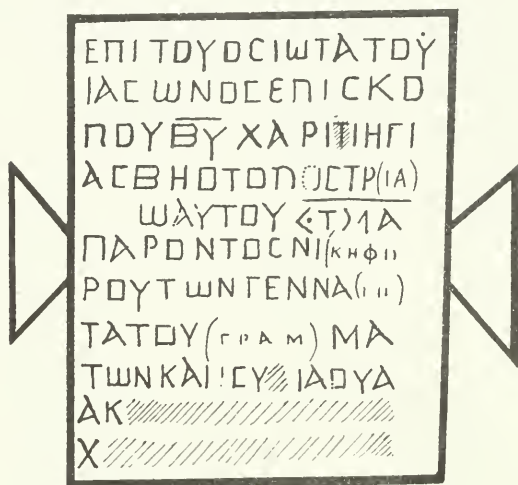 ΕΠΙ ΤΟΥ ΟϹΙΩΤΑΤΟΥ
ΙΑϹΩΝΟϹ ΕΠΙϹΚΟ
ΠΟΥ ΒΥ ΧΑΡΙΤΙ ΗΓΙ
ΑϹΒΗ Ο ΤΟΠΟϹ ΤΡ(ΙΑ)
ΩΑΥΤΟΥ
ΠΑΡΟΝΤΟϹ ΝΙ(ΚΗΦΙ
ΡΟΥ ΤΩΝ ΓΕΝΝΑ
ΤΑΤΟΥ (ΓΡΑΜ)ΜΑ
ΤΩΝ ΚΑΙ ΙΑΟΥΑ
ΑΚ
Χ